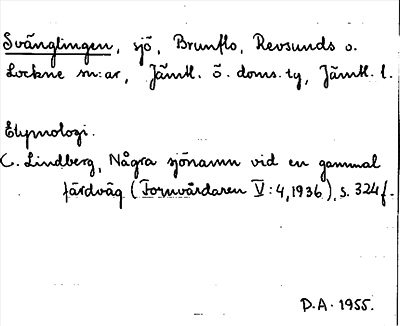 Svänglingen, sjö, Brunflo, Revsunds o.
Lockne sn:ar, Jämtl. ö. doms. tg, Jämtl. l.
Etymologi.
C. Lindberg, Några sjönamn vid en gammal
färdväg (Fornvårdaren V:4,1936), s. 324f.
D.A. 1955.